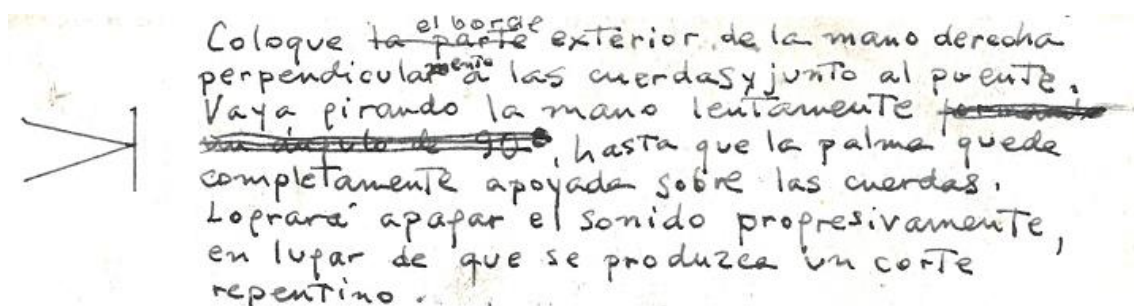 Coloque el borde exterior de la mano derecha
perpendicularmente a las cuerdas y junto al puente.
Vaya girando la mano lentamente
hasta que la palma quede
completamente apoyada sobre las cuerdas.
Logrará apagar el sonido progresivamente,
en lugar de que se produzca un corte
repentino.